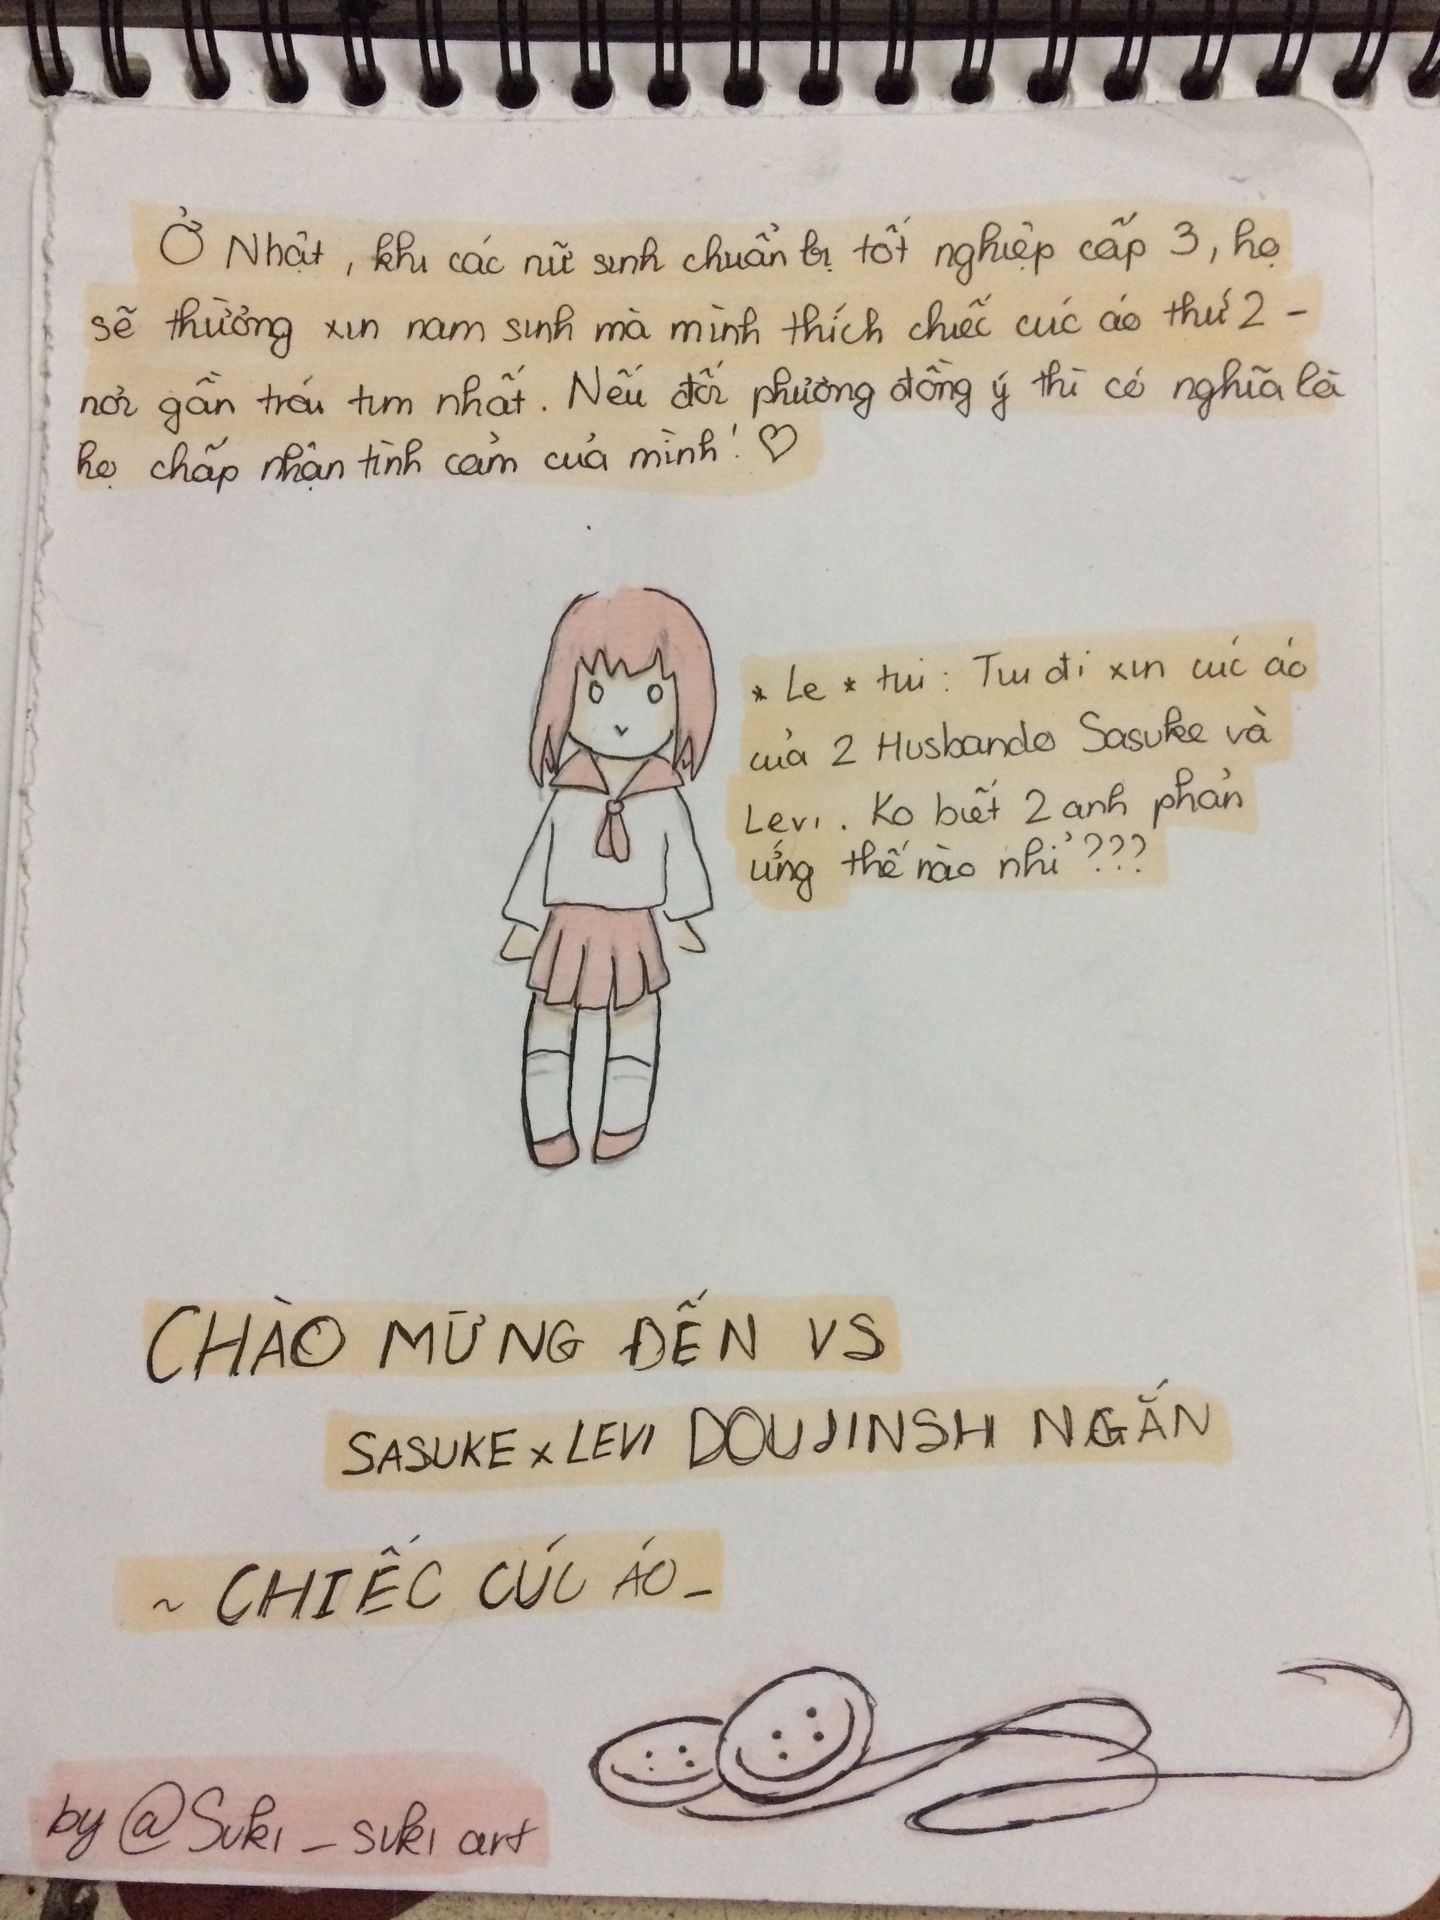 Ở Nhật, khi các nữ sinh chuẩn bị tốt nghiệp cấp 3, họ
sẽ thường xin nam sinh mà mình thích chiếc cúc áo thứ 2 -
nơi gần trái tim nhất. Nếu đối phương đồng ý thì có nghĩa là
họ chấp nhận tình cảm của mình! ♡
* Le * tui: Tui đi xin cúc áo
của 2 Husbando Sasuke và
Levi. Ko biết 2 anh phản
ứng thế nào nhỉ???
CHÀO MỪNG ĐẾN VS
SASUKE x LEVI DOUJINSHI NGẮN
~ CHIẾC CÚC ÁO_
by @Suki_suki art